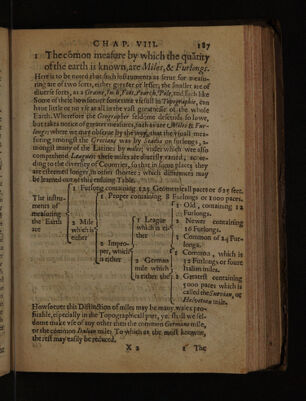 CHAP. VIII. 187
1 The cõmon measure by which the quãtity
of the earth is known, are Miles, & Furlongs.
Here is to be noted that such instruments as serue for measu-
ring are of two sorts, either greater or lesser; the smaller are of
diverse sorts, as a Graine, Inch, Foot, Pearch, Pole, and such like
Some of these howsoever sometime vsefull in Topographie, can
have little or no vse at all in the vast greatnesse of the whole
Earth. Wherefore the Geographer seldome descends so lowe,
but takes notice of greater measures, such as are Miles & Fur-
longs: where we may obserue by the way, that the vsuall mea-
suring amongst the Grecians was by Stadia or furlongs, a-
mongst many of the Latines by miles; vnder which wee also
comprehend Leagues: these miles are diversly rated; accor-
ding to the diversity of Countries, so that in some places they
are esteemed longer, in other shorter: which differences may
be learned out of this ensuing Table.
The instru-
ments of
measuring
the Earth
are
1 Furlong containing 125 Geometricall paces or 625 feet.
2 Mile
which is
either
1 Proper containing 8 Furlongs or 1000 paces.
2 Impro-
per, which
is either
1 League
which is ei-
ther
1 Old, containing 12
Furlongs.
2 Newer containing
16 Furlongs.
2 Common of 24 Fur-
longs.
2 German
mile which
is either the
1 Common, which is
32 Furlongs or foure
Italian miles.
2 Greatest containing
5000 paces which is
called the Suevian, or
Helvetian mile.
Howsoever this Distinction of miles may be many waies pro-
fitable, especially in the Topographicall part, yet shall we sel-
dome make vse of any other then the common Germane mile,
or the common Italian mile: To which as the most knowne,
the rest may easily be reduced.
X 2
1 The